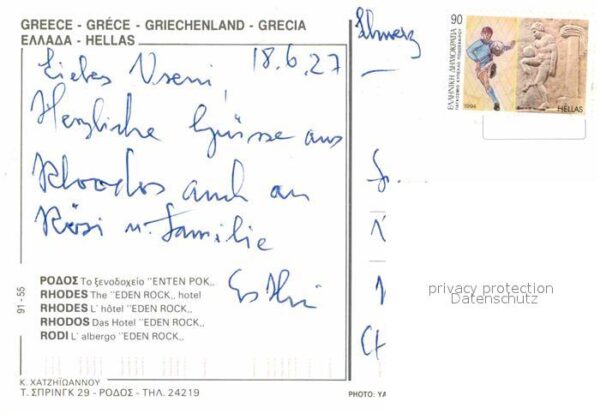 GREECE - GRÉCE - GRIECHENLAND - GRECIA
ΕΛΛΑΔΑ - HELLAS
18.6.27
Liebes Vreni,
Herzliche Grüsse aus
Rhodos auch an
Rösi u. Familie
Schweiz
90
ΕΛΛΗΝΙΚΗ ΔΗΜΟΚΡΑΤΙΑ
ΠΑΓΚΟΣΜΙΟ ΚΥΠΕΛΛΟ ΠΟΔΟΣΦΑΙΡΟΥ
1994
HELLAS
privacy protection
Datenschutz
91-55
ΡΟΔΟΣ Το ξενοδοχείο "ΕΝΤΕΝ ΡΟΚ,,
RHODES The "EDEN ROCK,, hotel
RHODES L' hôtel "EDEN ROCK,,
RHODOS Das Hotel "EDEN ROCK,,
RODI L' albergo "EDEN ROCK,,
Κ. ΧΑΤΖΗΪΩΑΝΝΟΥ
Τ. ΣΠΡΙΝΓΚ 29 - ΡΟΔΟΣ - ΤΗΛ. 24219
PHOTO: YA